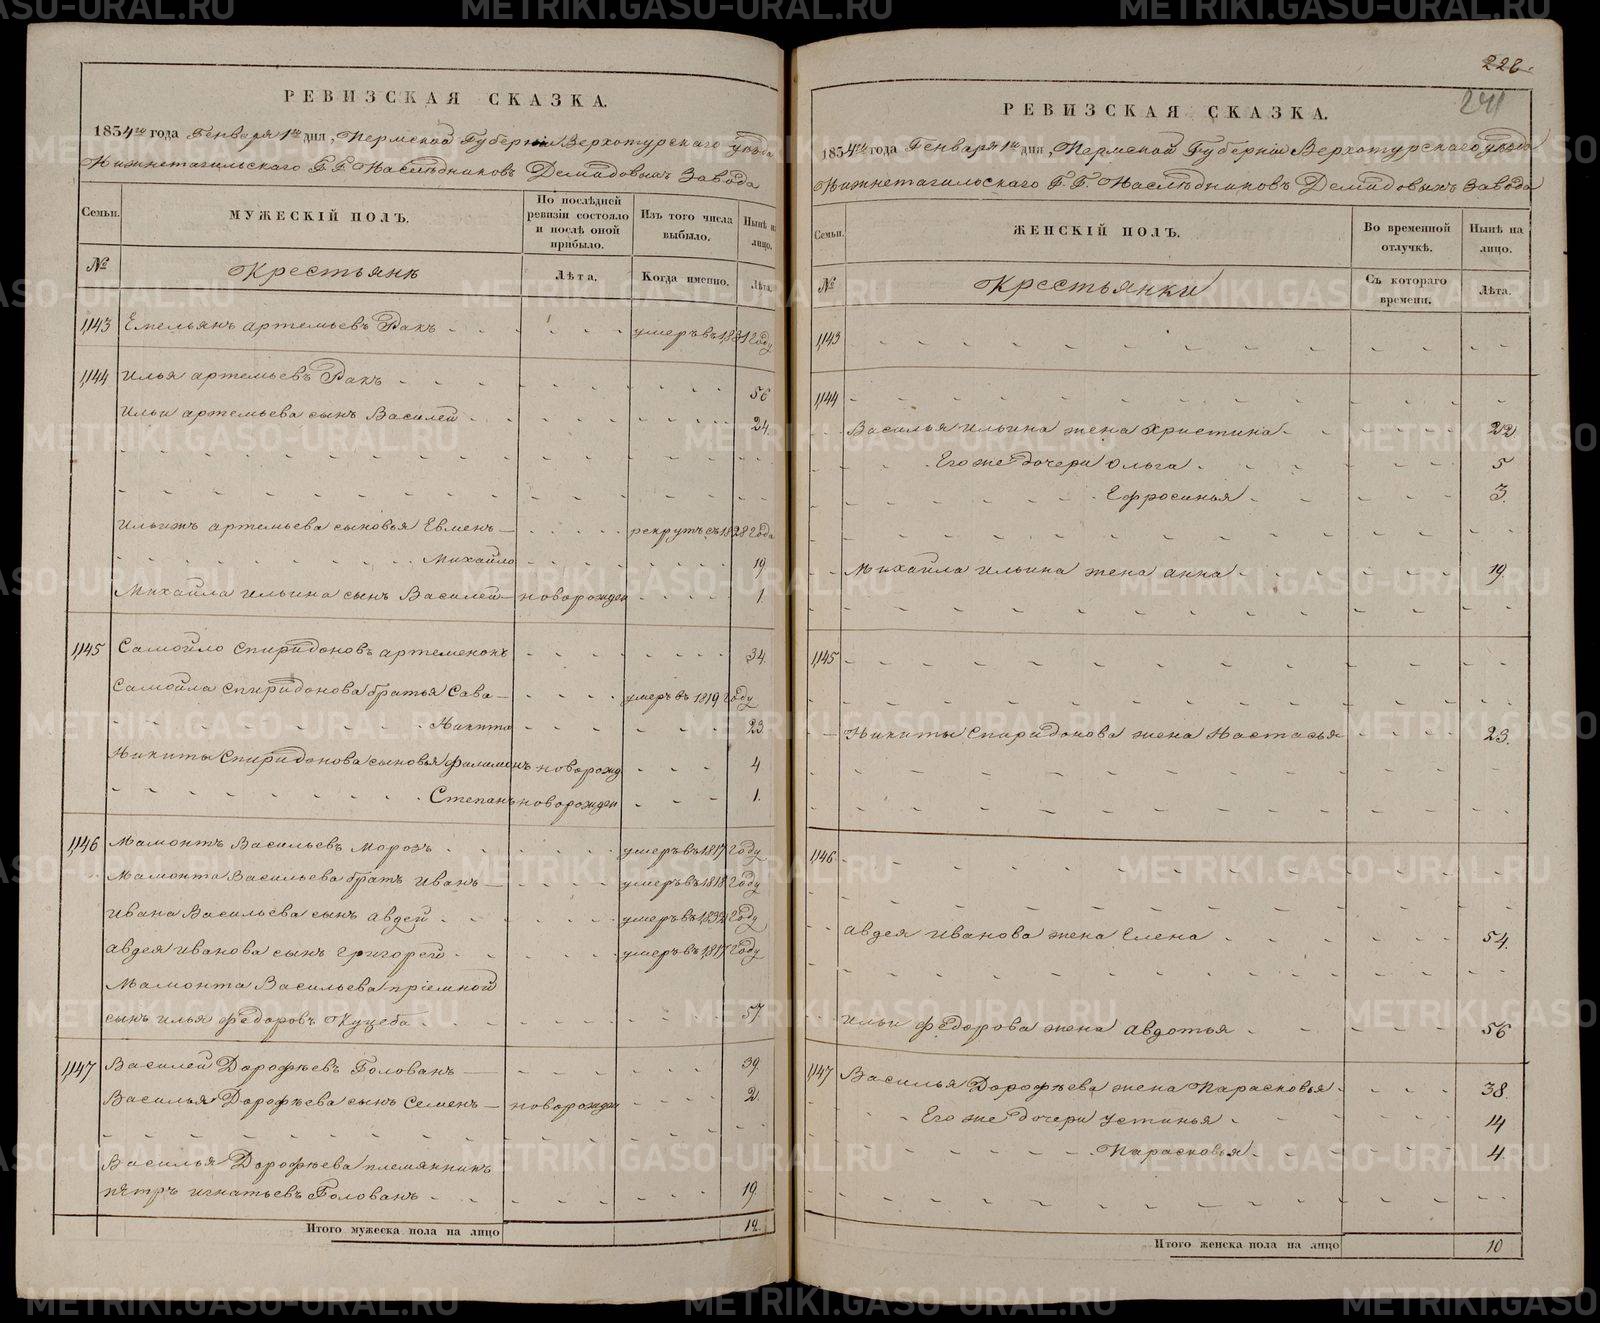 РЕВИЗСКАЯ СКАЗКА.
1834го года Генваря 1го дня, Пермской Губернии Верхотурского уезда
Нижнетагильскаго Г.Г. Наследниковъ Демидовыхъ Завода
Семьи.
МУЖЕСКІЙ ПОЛЪ.
По послѣдней ревизіи состояло и послѣ оной прибыло.
Изъ того числа выбыло.
Нынѣ на лицо.
№
Крестьяне
Лѣта.
Когда именно.
Лѣта.
1,143 Емельянъ артемьевъ Ракъ умеръ въ 1,831 году
1,144 Илья артемьевъ Ракъ 56
Ильи артемьева сынъ Василей 24.
Ильижъ артемьева сыновья Евменъ рекрутъ съ 1,828 года
Михайло 19
Михайла Ильина сынъ Василей новорожден 1.
1,145 Самойло Спиридоновъ артеменокъ 34.
Самойла Спиридонова братья Сава умеръ въ 1819 году
Никита 23.
Никиты Спиридонова сыновья филимонъ новорожд 4
Степанъ новорожден 1.
1,146 Мамонтъ Васильевъ Морозъ умеръ въ 1,817 году
Мамонта Васильева братъ Иванъ умеръ въ 1,818 году
Ивана Васильева сынъ авдей умеръ въ 1,832 году
авдея Иванова сынъ Григорей умеръ въ 1,817 году
Мамонта Васильева пріемной
сынъ илья федоровъ Куцеба 57
1,147 Василей Дорофѣевъ Голованъ 39.
Василья Дорофѣева сынъ Семенъ новорожден 2.
Василья Дорофѣева племянникъ
пётръ игнатьевъ Голованъ 19
Итого мужеска пола на лицо 12.
228.
241
РЕВИЗСКАЯ СКАЗКА.
1834го года Генваря 1го дня, Пермской Губерніи Верхотурскаго уезда
Нижнетагильскаго Г.Г. Наслѣдниковъ Демидовыхъ Завода
Семьи.
ЖЕНСКІЙ ПОЛЪ.
Во временной отлучкѣ.
Нынѣ на лицо.
№
Крестьянки
Съ котораго времени.
Лѣта.
1,143
1,144
Василья Ильина жена Христина 22.
Его же дочери Ольга 5
Ефросинья 3.
Михайла Ильина жена анна 19.
1,145
Никиты Спиридонова жена Настасья 23.
1,146
авдея Иванова жена Елена 54.
Ильи федорова жена авдотья 56
1,147 Василья Дорофѣева жена Парасковья 38.
Его же дочери Устинья 14
Парасковья 4
Итого женска пола на лицо 10
METRIKI.GASO-URAL.RU